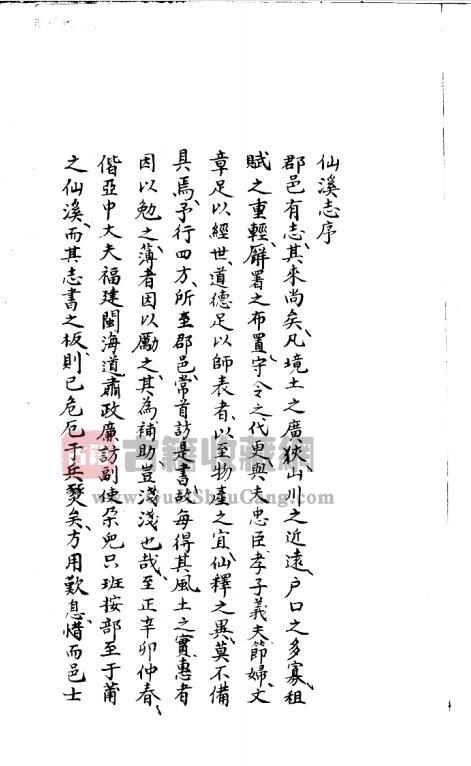 仙溪志序
郡邑有志、其來尚矣、凡境土之廣狹、山川之近遠、户口之多寡、租
賦之重輕、廨署之布置、守令之代更、與夫忠臣孝子義夫節婦、文
章足以經世、道德足以師表者、以至物產之宜、仙釋之異、莫不備
具焉、予行四方、所至郡邑、常首訪是書、故每得其風土之實、惠者
因以勉之、薄者因以勵之、其為補助、豈淺淺也哉、至正辛卯仲春、
偕亞中大夫福建閩海道肅政廉訪副使朶兒只班按部至于莆
之仙溪、而其志書之板、則已危厄于兵燹矣、方用歎息、惜而邑士
古籍收藏網